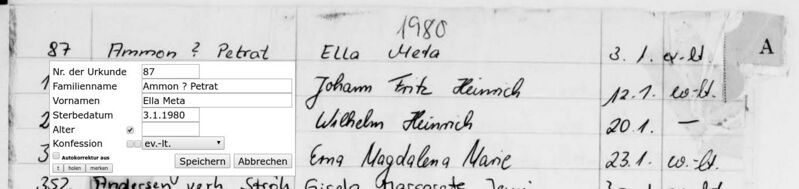 1980
87 Ammon ? Petrat Ella Meta 3.1. ev.-lt. A
Nr. der Urkunde 87
Familienname Ammon ? Petrat
Vornamen Ella Meta
Sterbedatum 3.1.1980
Alter
Konfession ev.-lt.
Autokorrektur aus
Speichern Abbrechen
t holen merken
1 Johann Fritz Heinrich 12.1. ev.-lt.
2 Wilhelm Heinrich 20.1. —
3 Erna Magdalena Marie 23.1. ev.-lt.
352 Andersen verh. Ströh Gisela Margarete